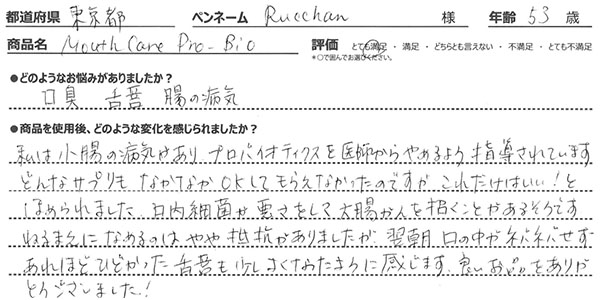 都道府県 東京都 ペンネーム Rucchan 様 年齢 53 歳
商品名 Mouth Care Pro-Bio 評価 とても満足・満足・どちらとも言えない・不満足・とても不満足
*○で囲んでお選びください。
●どのようなお悩みがありましたか？
口臭 舌苔 腸の病気
●商品を使用後、どのような変化を感じられましたか？
私は小腸の病気があり、プロバイオティクスを医師からやめるよう指導されています
どんなサプリも なかなかOKしてもらえなかったのですが これだけはいい！と
ほめられました。口内細菌が悪さをして大腸がんを招くことがあるそうです
ねるまえになめるのは やや抵抗がありましたが、翌朝、口の中がネバネバせず
あれほどひどかった舌苔も少しよくなったように感じます。良いお品をありが
とうございました！